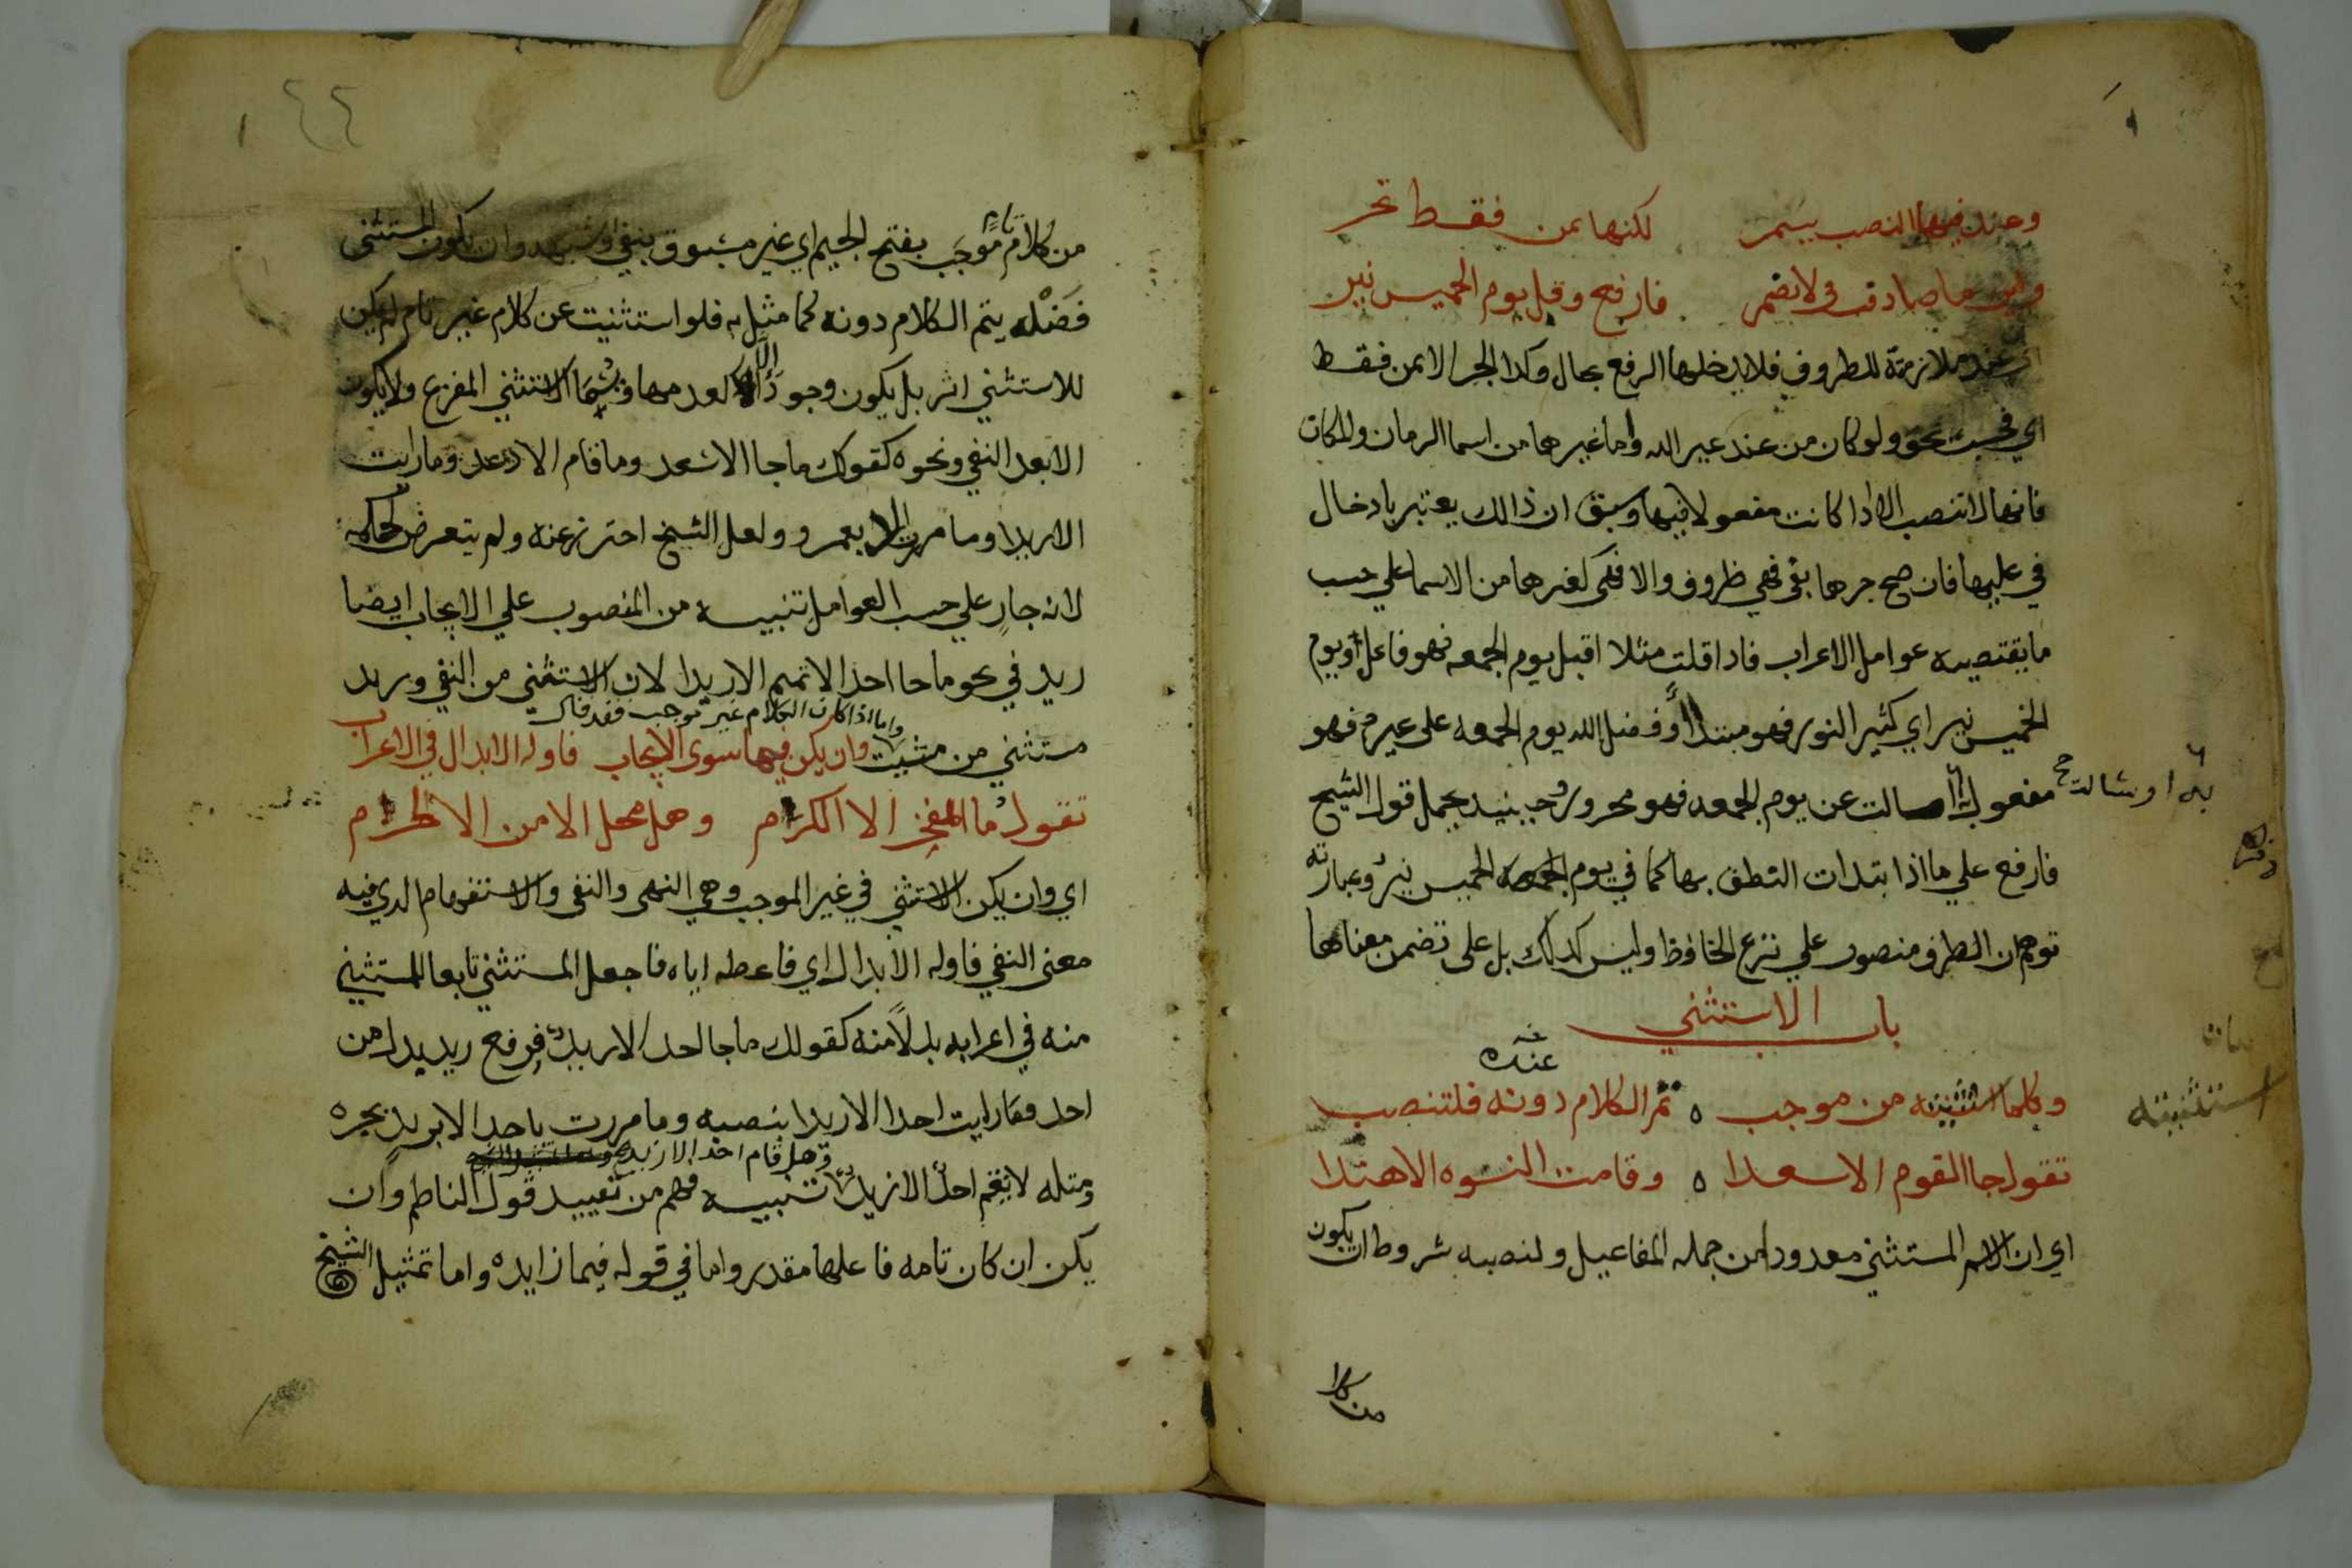 وعند فيها النصب يستمر لكنها بمن فقط تجر
واين ما صادفت في لا تضمر فارفع وقل يوم الخميس نير
عند ملازمة للظروف فلا يدخلها الرفع بحال وكذا الجر الا بمن فقط
اي فحسب نحو ولو كان من عند غير الله واما غيرها من اسما الزمان والمكان
فانها لا تنصب الا اذا كانت مفعولا فيها وسبق ان ذالك يعتبر بادخال
في عليها فان صح جرها بفي فهي ظروف والا فهي كغيرها من الاسما علي حسب
ما يقتضيه عوامل الاعراب فاذا قلت مثلا اقبل يوم الجمعه فهو فاعل او يوم
الخميس نير اي كثير النور فهو مبتدا او فضل الله يوم الجمعه على غيره فهو
مفعول به او سالت عن يوم الجمعه فهو مجرور وحينيد يحمل قول الشيخ
به او سالت صح
فارفع علي ما اذا ابتدات النطق بها كما في يوم الخميس نير وعبارته
توهم ان الظرف منصوب علي نزع الخافظ وليس كدلك بل على تضمن معناها
باب الاستثني
عنده
وكلما استثنيته من موجب ٥ تم الكلام دونه فلتنصب
استثنيته
تقول جا القوم الا سعدا ٥ وقامت النسوه الا هندا
اي ان الاسم المستثني معدود من جمله المفاعيل ولنصبه شروط ان يكون
من كلا
٤٤
من كلام تام موجب بفتح الجيم اي غير مسبوق بنفي او شبهه وان يكون المستثنى
فضله يتم الكلام دونه كما مثل به فلو استثنيت عن كلام غير تام لم يكن
للاستثني اثر بل يكون وجود الا كعدمها ويسما الاستثني المفرغ ولا يكون
الا بعد النفي ونحوه كقولك ما جا الا سعد وما قام الا دعد وما رايت
الا زيدا وما مررت الا بعمرو ولعل الشيخ احترز عنه ولم يتعرض لحكمه
لانه جار علي حسب العوامل تنبيه من المنصوب علي الايجاب ايضا
زيد في نحو ما جا احد الا تميم الا زيدا لان الاستثني من النفي وزيد
واما اذا كان الكلام غير موجب فقد قال
مستثني من مثبت وان يكن فيما سوى الايجاب فاوله الابدال في الاعراب
تقول ما المفخر الا الكرم وهل محل الامن الا الحرم
اي وان يكن الاستثني في غير الموجب وهي النهى والنفى والاستفهام الدي فيه
معنى النفي فاوله الابدال اي فاعطه اياه فاجعل المستثني تابعا للمستثني
منه في اعرابه بدلا منه كقولك ما جا احد الا زيد فرفع زيد بدل من
احد وما رايت احدا الا زيدا بنصبه وما مررت باحد الا بزيد بجره
وهل قام احد الا زيد
ومثله لا يقم احد الا زيد تنبيه فهم من تقييد قول الناظم وان
يكن ان كان تامه فاعلها مقدر واما في قوله فيما زايده واما تمثيل الشيخ